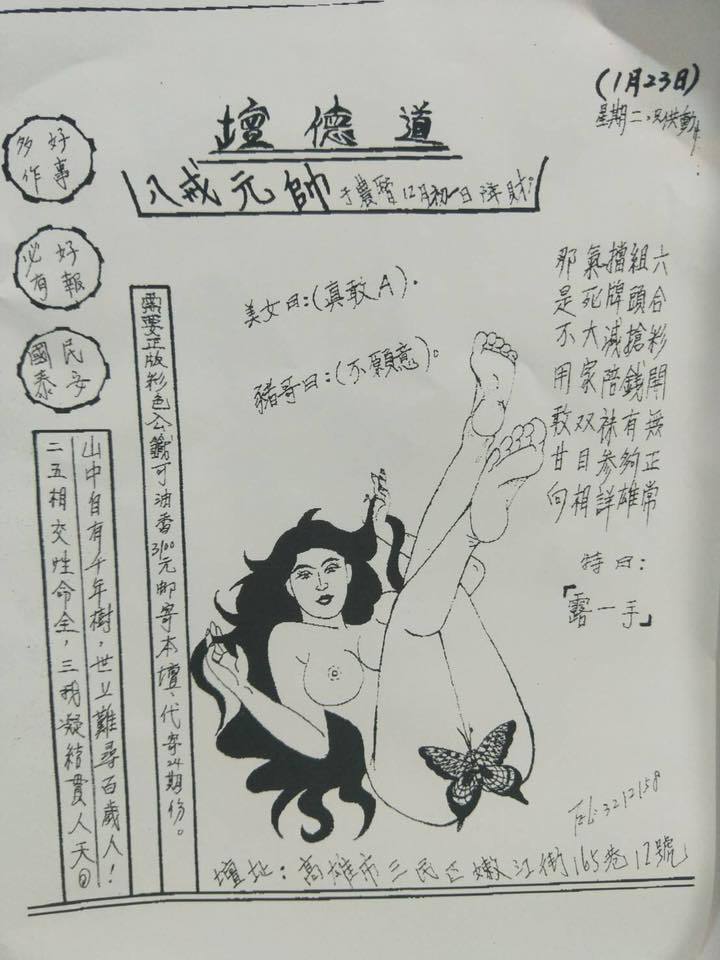 (1月23日)
星期二
道德壇
八戒元帥于農曆12月初一日降財
好事多作
好報必有
民安國泰
美女曰:(真敢A)。
豬哥曰:(不願意)。
六合彩開無正常
組頭搶錢有夠雄
擋牌減陪袜参詳
氣死大家双目相
那是不用敢甘向
特曰:
「露一手」
需要正版彩色公籤可油香3100元郵寄本壇、代寄24期份。
山中自有千年樹,世上難尋百歲人!
二五相交性命全,三我凝結貫人天
Tel:3212158
壇址:高雄市三民區嫩江街165巷12號